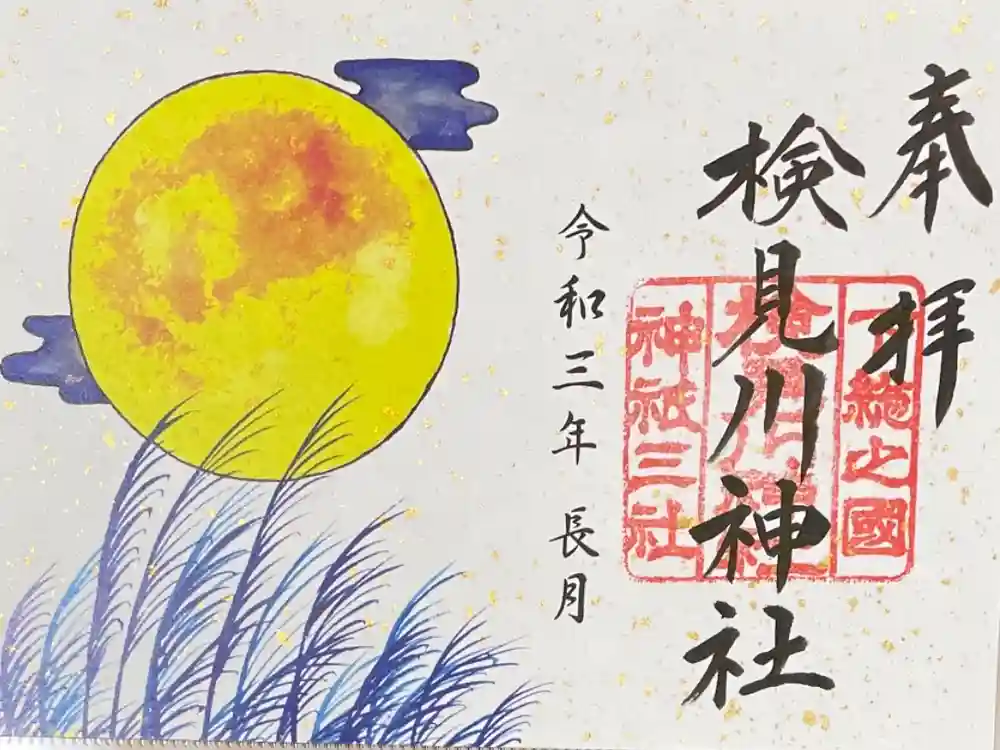 奉拝
検見川神社
下総之國
神祇三社
令和三年 長月